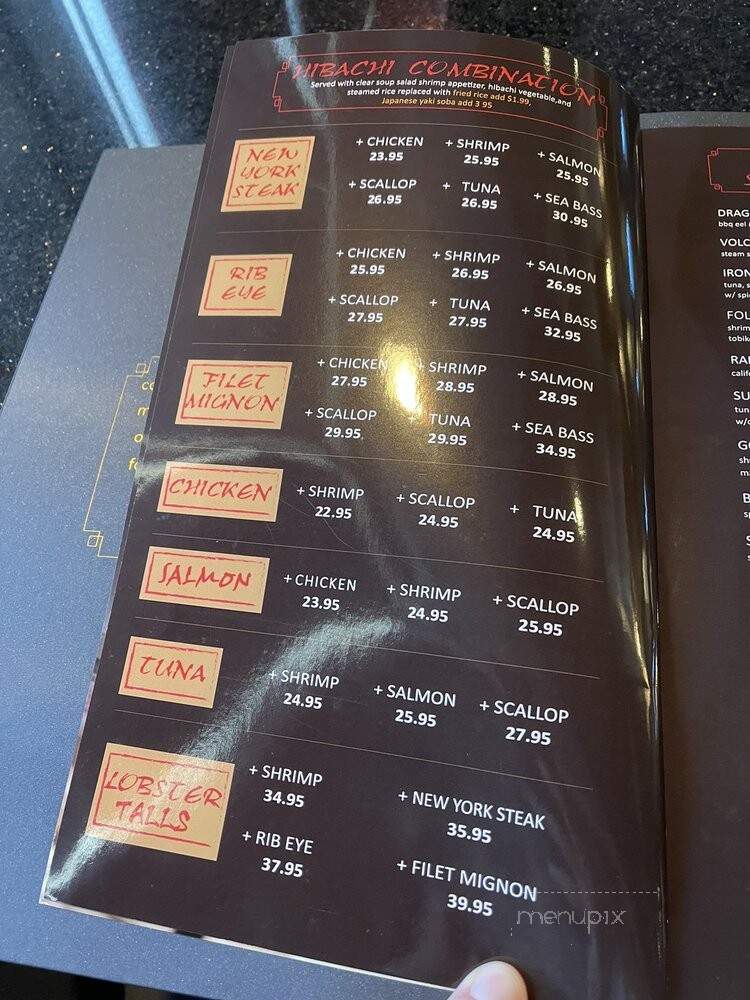 HIBACHI COMBINATION
Served with clear soup salad shrimp appetizer, hibachi vegetable,and
steamed rice replaced with fried rice add $1.99,
Japanese yaki soba add 3 95
NEW
YORK
STEAK
+ CHICKEN + SHRIMP + SALMON
23.95 25.95 25.95
+ SCALLOP + TUNA + SEA BASS
26.95 26.95 30.95
RIB
EYE
+ CHICKEN + SHRIMP + SALMON
25.95 26.95 26.95
+ SCALLOP + TUNA + SEA BASS
27.95 27.95 32.95
FILET
MIGNON
+ CHICKEN + SHRIMP + SALMON
27.95 28.95 28.95
+ SCALLOP + TUNA + SEA BASS
29.95 29.95 34.95
CHICKEN
+ SHRIMP + SCALLOP + TUNA
22.95 24.95 24.95
SALMON
+ CHICKEN + SHRIMP + SCALLOP
23.95 24.95 25.95
TUNA
+ SHRIMP + SALMON + SCALLOP
24.95 25.95 27.95
LOBSTER
TALLS
+ SHRIMP + NEW YORK STEAK
34.95 35.95
+ RIB EYE + FILET MIGNON
37.95 39.95
bbq eel
tuna,
menupix